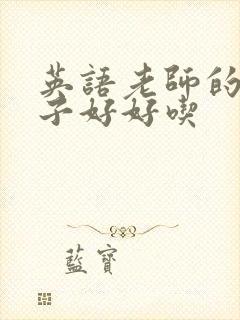 英語老師的
子好好喫
藍寶